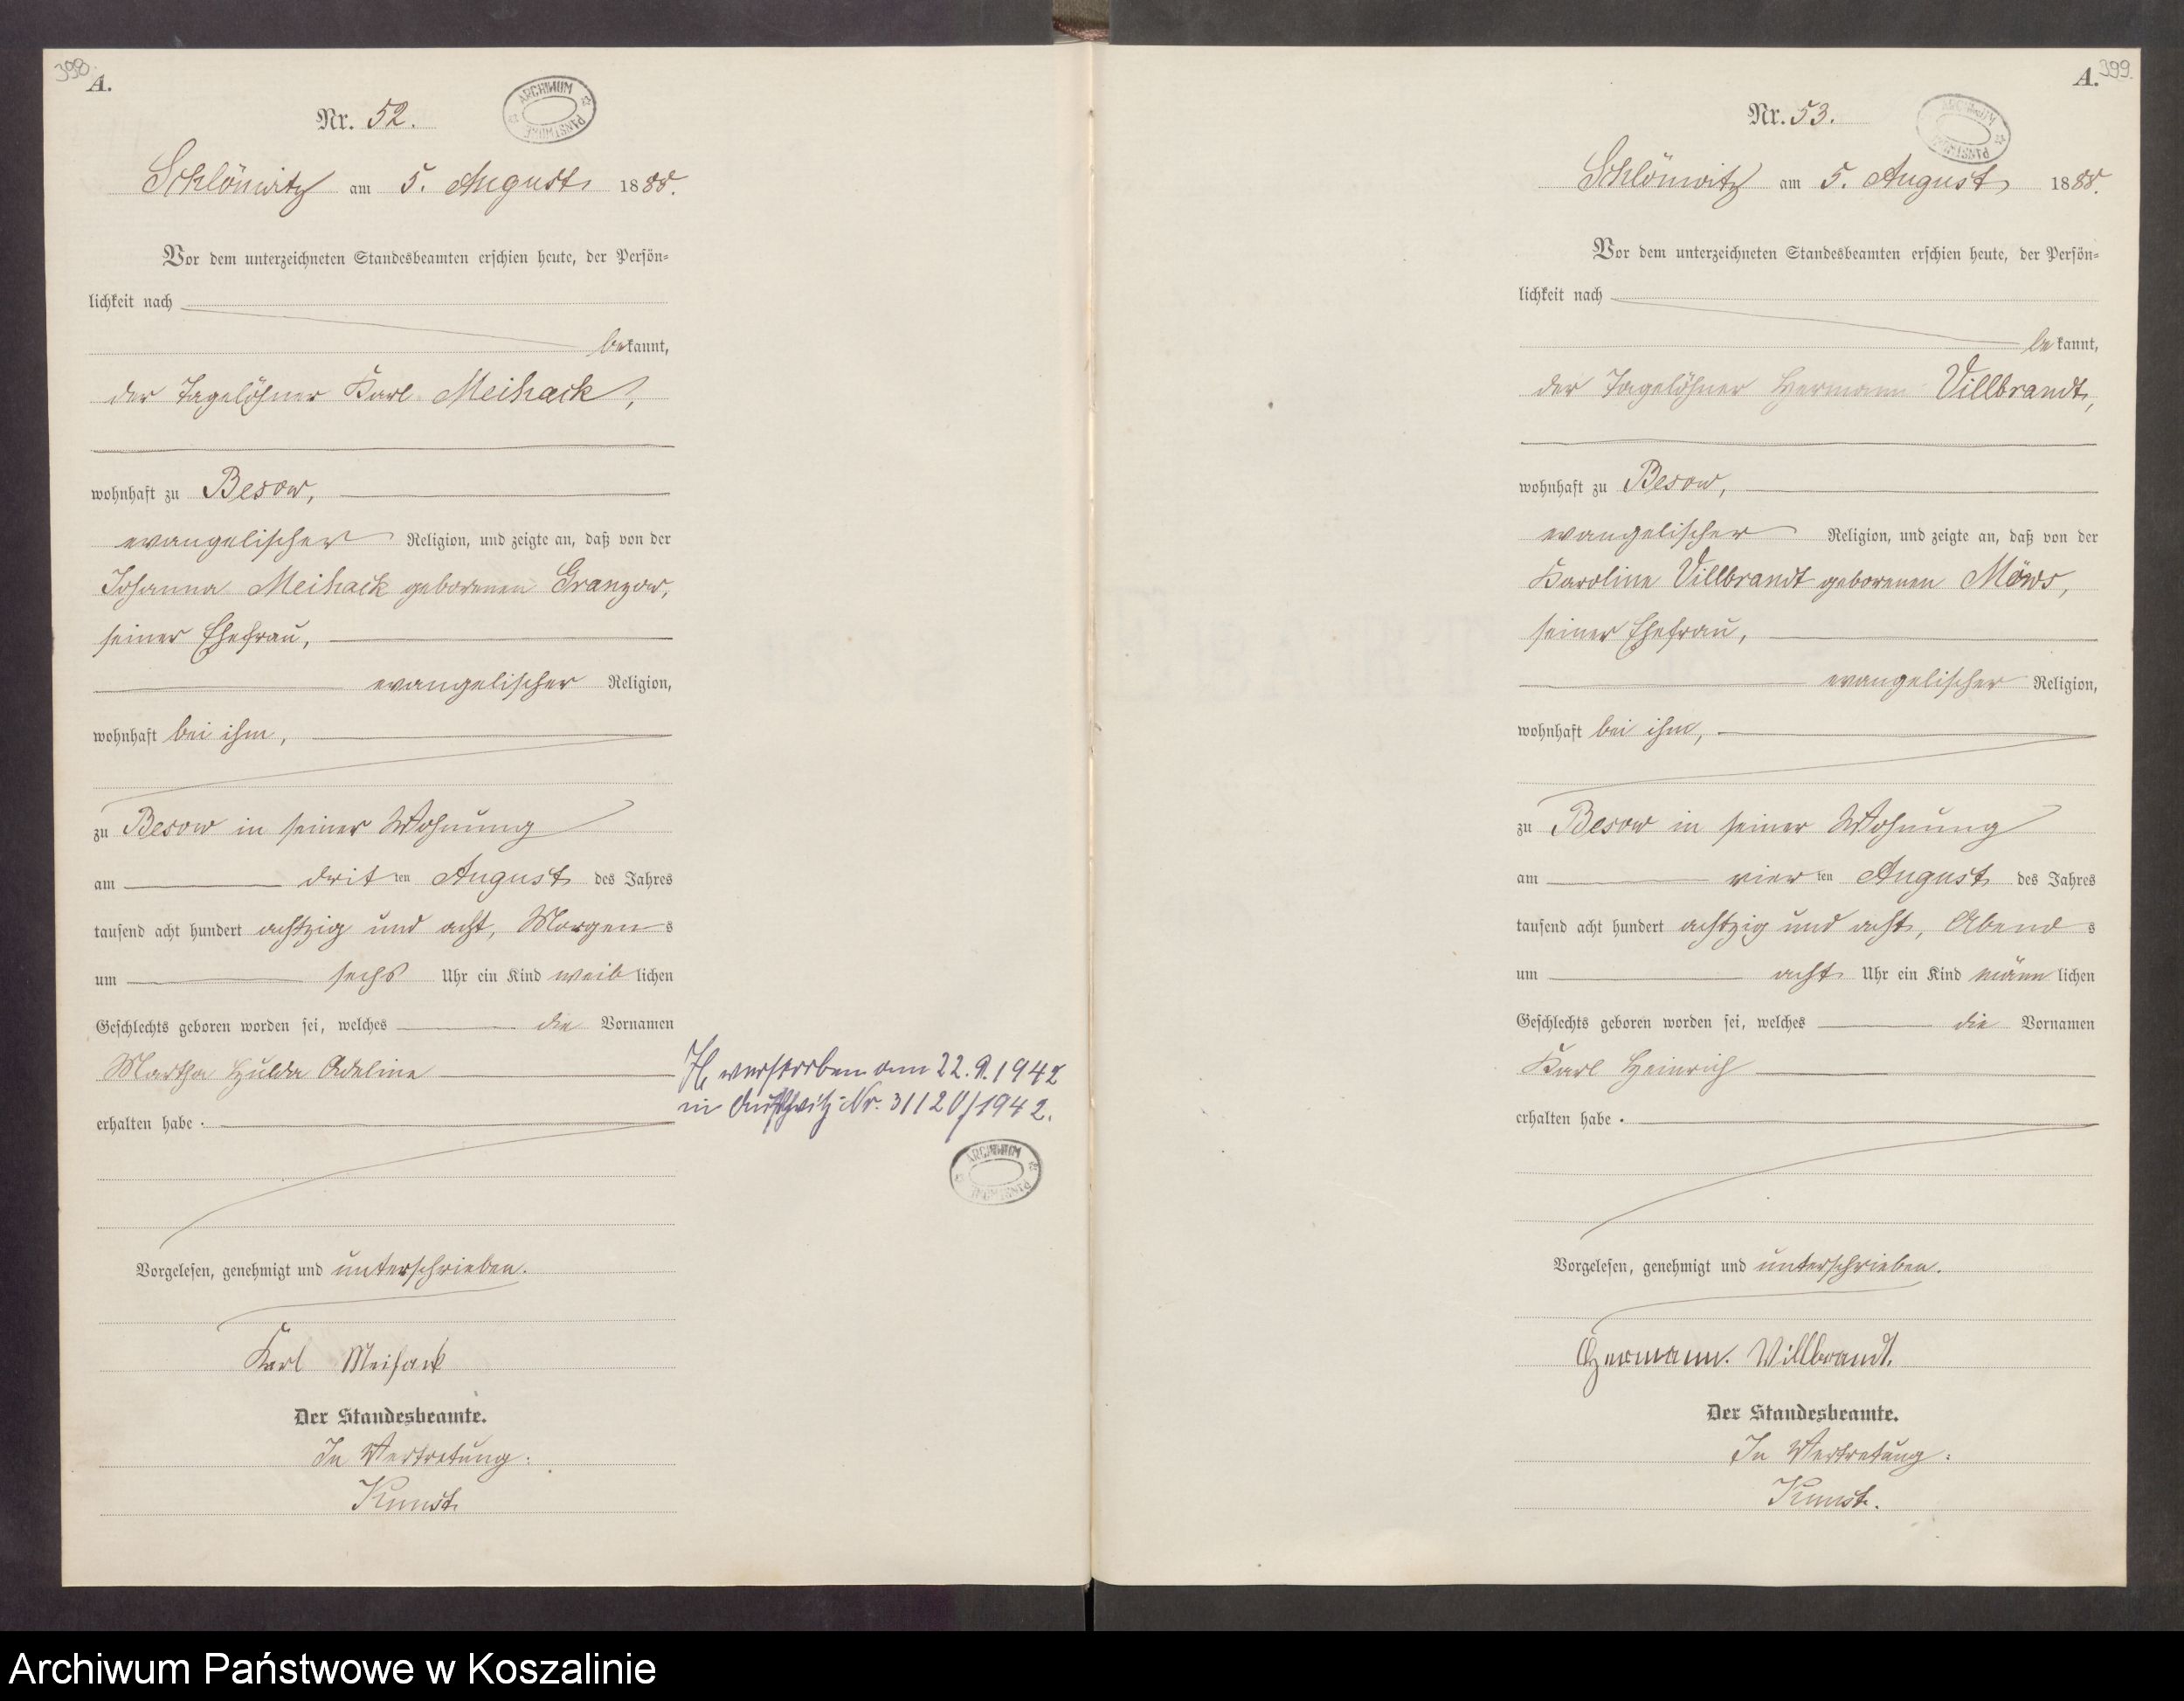 398.
A.
Nr. 52.
ARCHIWUM PAŃSTWOWE
Schlönwitz am 5. August 1888.
Vor dem unterzeichneten Standesbeamten erschien heute, der Persön=
lichkeit nach
bekannt,
der Tagelöhner Karl Meihack,
wohnhaft zu Besow,
evangelischer Religion, und zeigte an, daß von der
Johanna Meihack geborenen Granzow,
seiner Ehefrau,
evangelischer Religion,
wohnhaft bei ihm,
zu Besow in seiner Wohnung
am dritten August des Jahres
tausend acht hundert achtzig und acht, Morgens
um sechs Uhr ein Kind weiblichen
Geschlechts geboren worden sei, welches die Vornamen
Martha Hulda Adeline
erhalten habe.
Vorgelesen, genehmigt und unterschrieben.
Karl Meihack
Der Standesbeamte.
In Vertretung:
Kunst.
verstorben am 22.9.1942
in Nr. 31120/1942.
ARCHIWUM PAŃSTWOWE
A.
399.
Nr. 53.
ARCHIWUM PAŃSTWOWE
Schlönwitz am 5. August 1888.
Vor dem unterzeichneten Standesbeamten erschien heute, der Persön=
lichkeit nach
bekannt,
der Tagelöhner Hermann Villbrandt,
wohnhaft zu Besow,
evangelischer Religion, und zeigte an, daß von der
Karoline Villbrandt geborenen Möws,
seiner Ehefrau,
evangelischer Religion,
wohnhaft bei ihm,
zu Besow in seiner Wohnung
am vierten August des Jahres
tausend acht hundert achtzig und acht, Abends
um acht Uhr ein Kind männlichen
Geschlechts geboren worden sei, welches die Vornamen
Karl Heinrich
erhalten habe.
Vorgelesen, genehmigt und unterschrieben.
Hermann. Villbrandt.
Der Standesbeamte.
In Vertretung:
Kunst.
Archiwum Państwowe w Koszalinie